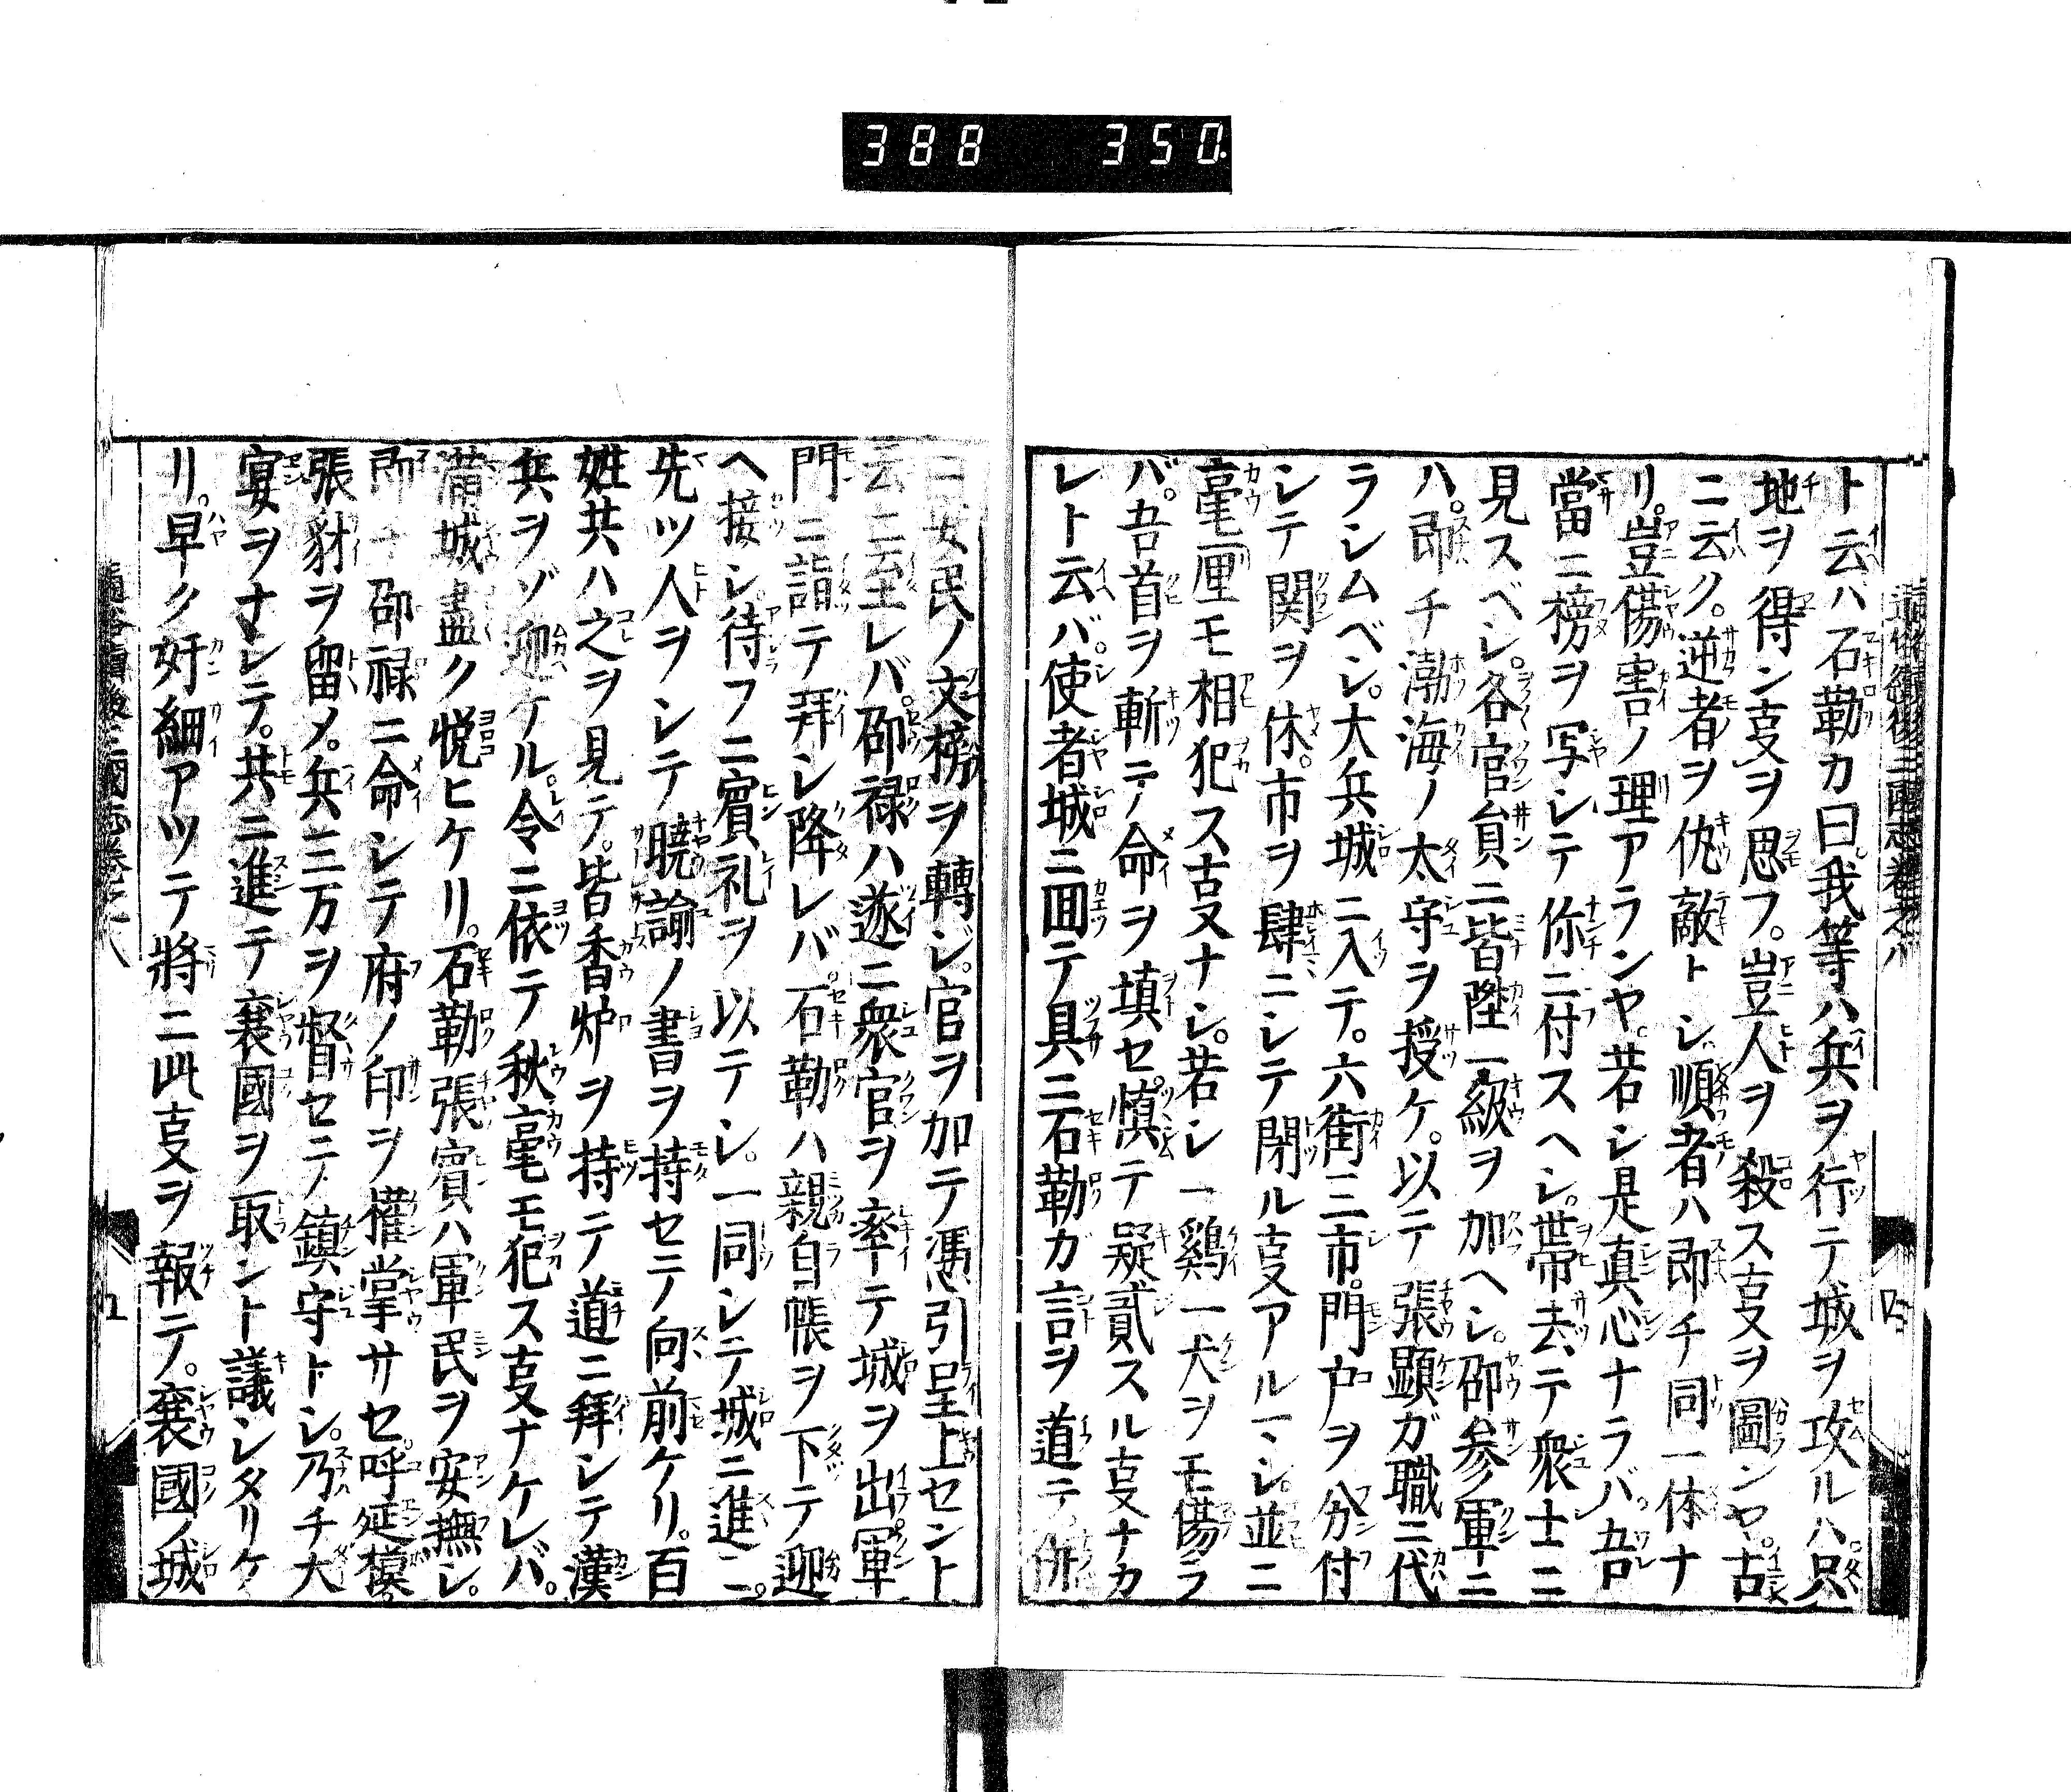 388 350.
通俗續後三國志卷之八
ト云ハ石勒カ曰我等ハ兵ヲ行テ城ヲ攻ルハ只
地ヲ得ン㕝ヲ思フ。豈人ヲ殺ス㕝ヲ圖ンヤ。古
ニ云ク。逆者ヲ仇敵トシ順者ハ即チ同一体ナ
リ。豈傷害ノ理アランヤ。若シ是真心ナラバ吾
當ニ榜ヲ写シテ你ニ付スヘシ。帶去テ衆士ニ
見スベシ。各官員ニ皆陞一級ヲ加ヘシ。邵参軍ニ
ハ。即チ渤海ノ太守ヲ授ケ。以テ張顕ガ職ニ代
ラシムベシ。大兵城ニ入テ。六街三市。門戸ヲ分付
シテ関ヲ休。市ヲ肆ニシテ閉ル㕝アルヘシ。並ニ
毫厘モ相犯ス㕝ナシ。若シ一鷄一犬ヲモ傷ラ
バ。吾首ヲ斬テ命ヲ填セ。慎テ疑貳スル㕝ナカ
レト云バ使者城ニ囬テ具ニ石勒ガ言ヲ道テ。併
四
ニ安民ノ文榜ヲ轉ジ。官ヲ加テ馮引呈上セント
云ニ至レバ。邵禄ハ遂ニ衆官ヲ率テ城ヲ出軍
門ニ詣テ拜シ降レバ。石勒ハ親自帳ヲ下テ迎
ヘ接シ待フニ賓礼ヲ以テシ。一同シテ城ニ進ニ。
先ツ人ヲシテ曉諭ノ書ヲ持セテ向前ケリ。百
姓共ハ之ヲ見テ。皆香炉ヲ持テ道ニ拜シテ漢
兵ヲゾ迎ケル。令ニ依テ秋毫モ犯ス㕝ナケレバ。
満城盡ク悦ヒケリ。石勒張賓ハ軍民ヲ安撫シ。
即チ邵禄ニ命シテ府ノ印ヲ權掌サセ。呼延模
張豺ヲ留メ。兵三万ヲ督セテ鎮守トシ。乃チ大
宴ヲナシテ。共ニ進テ襄國ヲ取ント議シタリケ
リ。早ク奸細アツテ將ニ此㕝ヲ報テ。襄國ノ城
通俗續後三國志卷之八
五